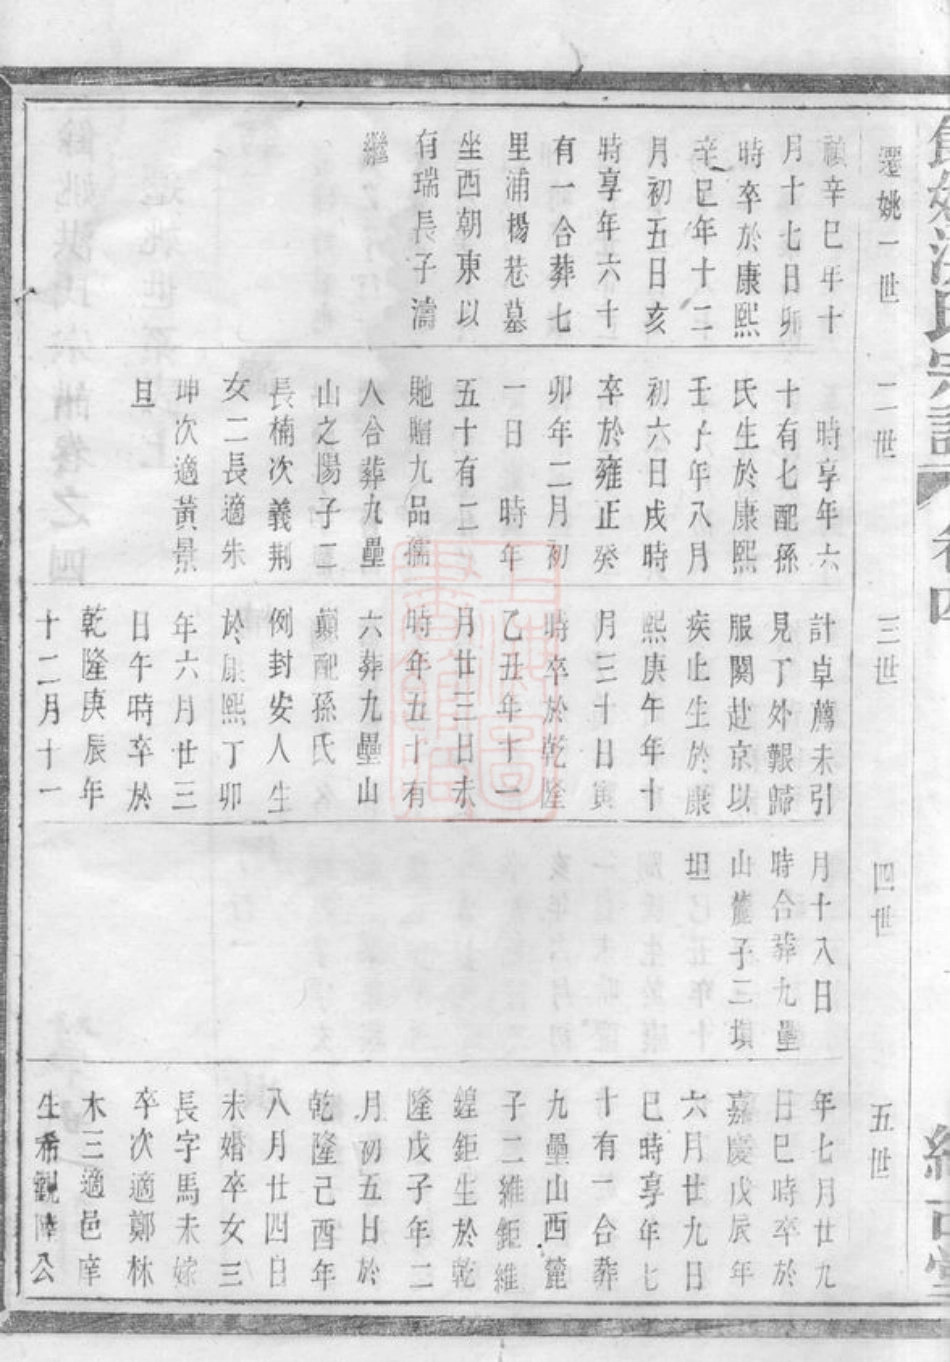 遷姚一世
禎辛巳年十
月十七日卯
時卒於康熙
辛巳年十二
月初五日亥
時享年六十
有一合葬七
里浦楊巷墓
坐西朝東以
有瑞長子濤
繼
二世
時享年六
十有七配孫
氏生於康熙
壬子年八月
初六日戌時
卒於雍正癸
卯年二月初
一日 時年
五十有二
貤贈九品孺
人合葬九壘
山之陽子二
長楠次義荆
女二長適朱
坤次適黃景
旦
三世
計卓薦未引
見丁外艱歸
服闋赴京以
疾止生於康
熙庚午年十
月三十日寅
時卒於乾隆
乙丑年十一
月廿三日未
時年五十有
六葬九壘山
巔配孫氏
例封安人生
於康熙丁卯
年六月廿三
日午時卒於
乾隆庚辰年
十二月十一
四世
月十八日
時合葬九壘
山麓子三塤
坦
五世
年七月廿九
日巳時卒於
嘉慶戊辰年
六月廿九日
巳時享年七
十有一合葬
九壘山西麓
子二維鉅維
鍠鉅生於乾
隆戊子年二
月初五日於
乾隆己酉年
八月廿四日
未婚卒女三
長字馬未嫁
卒次適鄭林
木三適邑庠
生希觀陸公